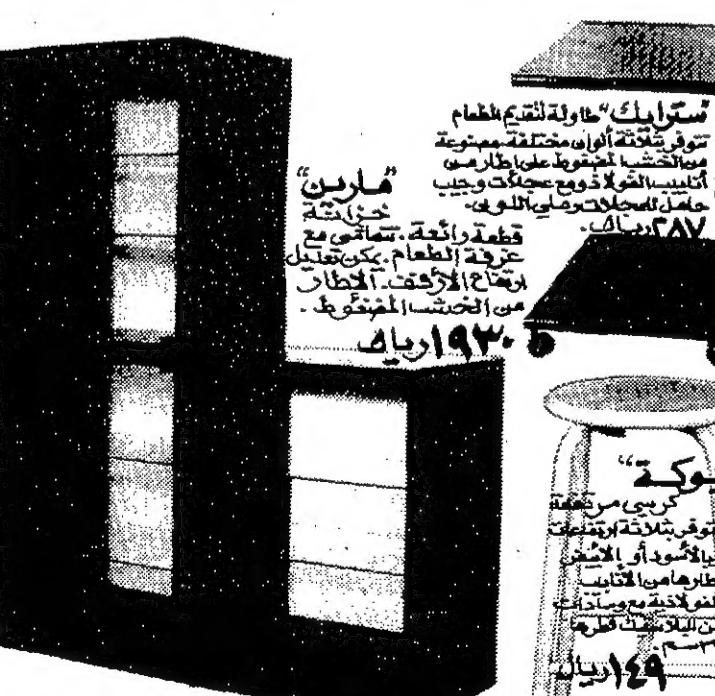 ستراييك "طاولة لتقديم الطعام
تتوفر بثلاثة ألوان مختلفة مصنوعة
من الخشب المضغوط على إطار من
أنابيب الفولاذ ومع عجلات وجيب
حامل للمجلات وعلى اللونين.
٢٨٧ ريال.
"مارين"
خزانة
قطعة رائعة. تتماشى مع
غرفة الطعام. يمكن تعديل
ارتفاع الأرفف. الاطار
من الخشب المضغوط.
١٩٣٠ ريال
وكة"
كرسي مرتفعة
توفر بثلاثة ارتفاعات
بالأسود أو الأبيض
طارها من الأنابيب
لفولاذية مع وسادات
ن البلاستك قطرها
سم
١٤٩ ريال